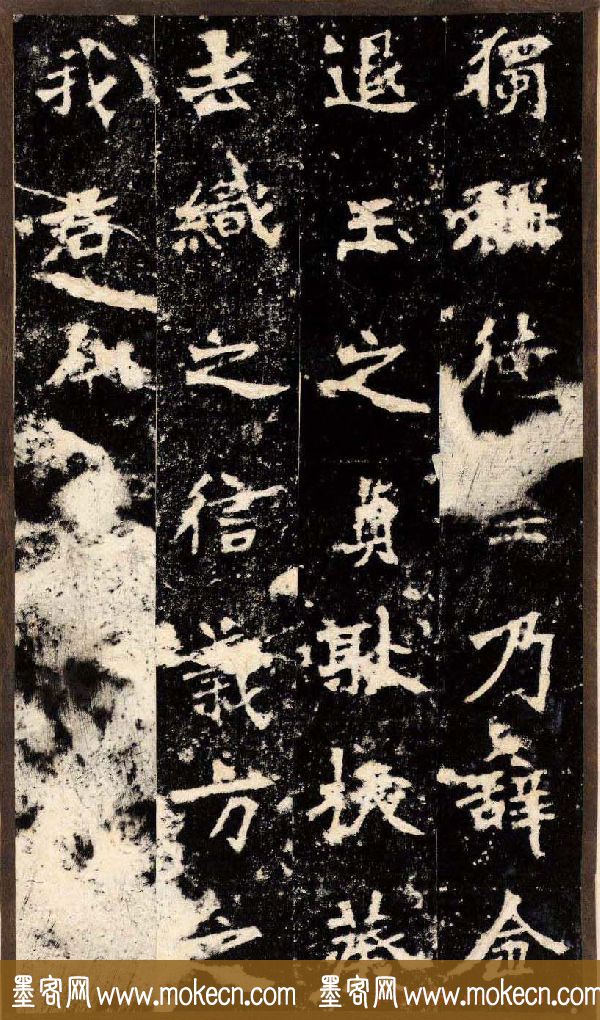 獨徒王乃辭金
退玉之貞耿拔葵
去織之信義方之
我君
墨客网 www.mokecn.com 墨客网 www.mokecn.com